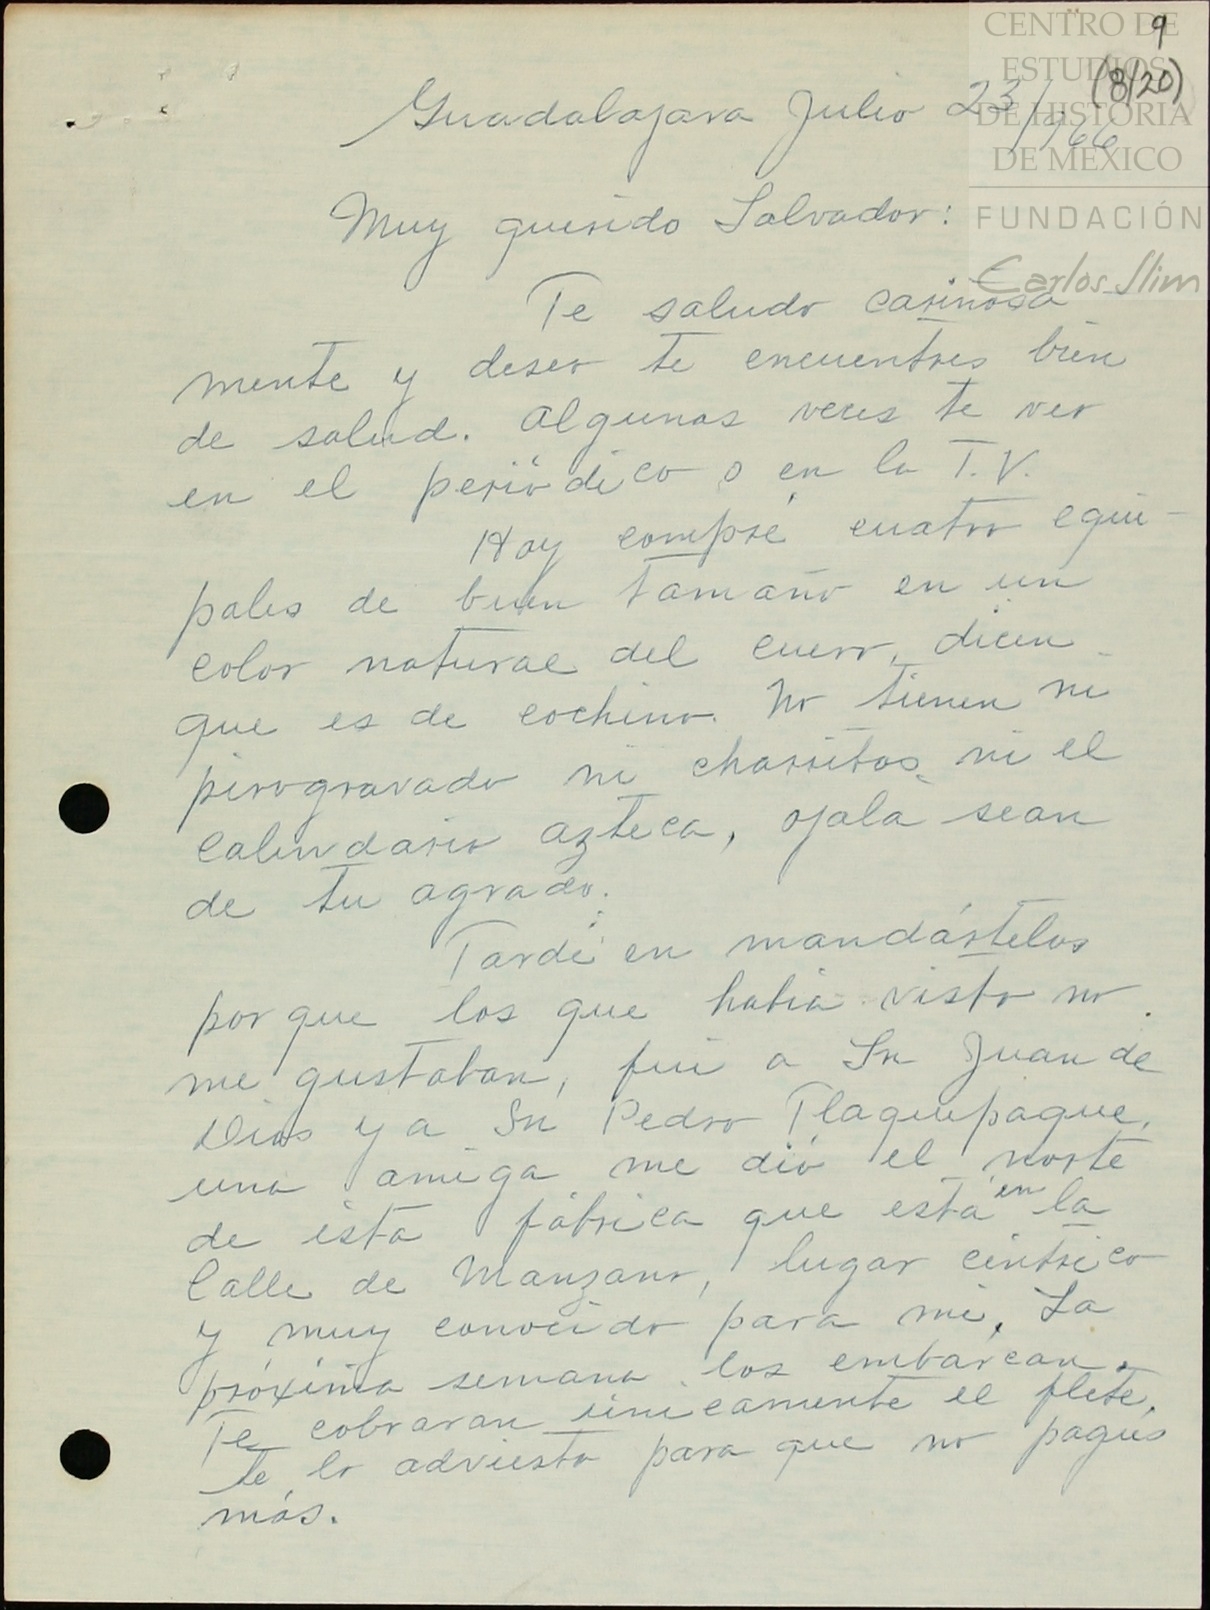 CENTRO DE
ESTUDIOS
DE HISTORIA
DE MEXICO
FUNDACIÓN
Carlos Slim
9
(8/20)
Guadalajara Julio 23/966
Muy querido Salvador:
Te saludo cariñosa-
mente y deseo te encuentres bien
de salud. Algunas veces te veo
en el periódico o en la T.V.
Hoy compré cuatro equi-
pales de buen tamaño en un
color natural del cuero, dicen
que es de cochino. No tienen ni
pirogravado ni charritos ni el
calendario azteca, ojala sean
de tu agrado.
Tardé en mandártelos
porque los que había visto no
me gustaban, fui a Sn Juan de
Dios y a Sn Pedro Tlaquepaque,
una amiga me dió el norte
de ésta fábrica que está en la
Calle de Manzano, lugar céntrico
y muy conocido para mi. La
próxima semana los embarcan.
Te cobraran únicamente el flete,
te lo advierto para que no pagues
más.